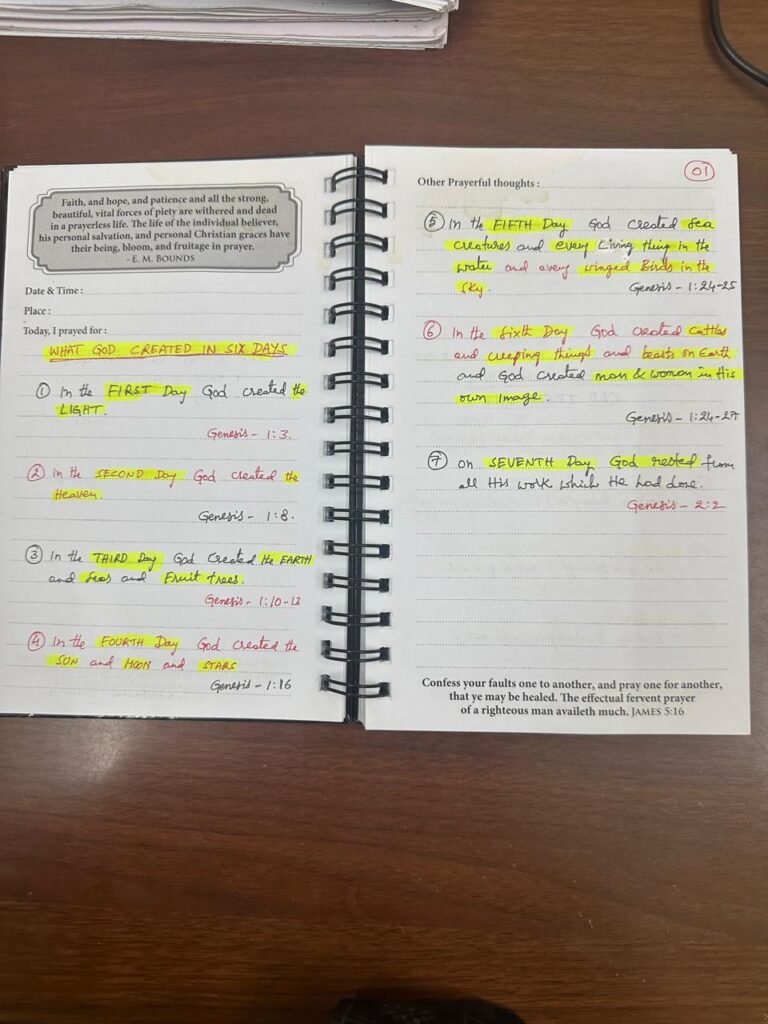 Faith, and hope, and patience and all the strong,
beautiful, vital forces of piety are withered and dead
in a prayerless life. The life of the individual believer,
his personal salvation, and personal Christian graces have
their being, bloom, and fruitage in prayer.
- E. M. BOUNDS
Date & Time :
Place :
Today, I prayed for :
WHAT GOD CREATED IN SIX DAYS
① In the FIRST Day God created the
LIGHT.
Genesis - 1:3.
② In the SECOND Day God created the
Heaven.
Genesis - 1:8.
③ In the THIRD Day God Created the EARTH
and Seas and Fruit trees.
Genesis - 1:10-13
④ In the FOURTH Day God created the
SUN and MOON and STARS
Genesis - 1:16
01
Other Prayerful thoughts :
⑤ In the FIFTH Day God created Sea
creatures and every Living thing in the
water and every winged Birds in the
Sky.
Genesis - 1:24-25
⑥ In the Sixth Day God created Cattles
and creeping things and beasts on Earth
and God created man & woman in His
own Image.
Genesis - 1:24-27
⑦ on SEVENTH Day God rested from
all His work which He had done.
Genesis - 2:2
Confess your faults one to another, and pray one for another,
that ye may be healed. The effectual fervent prayer
of a righteous man availeth much. JAMES 5:16